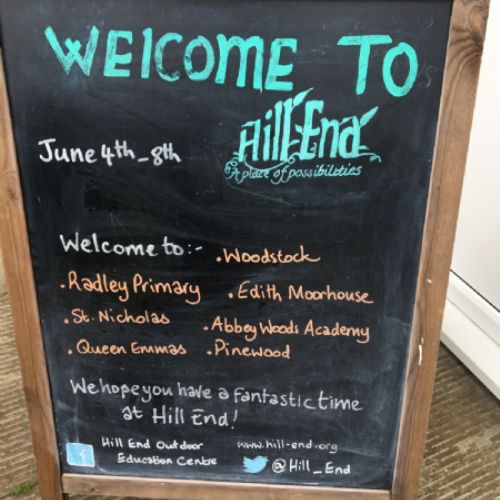 WELCOME TO
Hill-End
A place of possibilities
June 4th_8th
Welcome to:-
.Woodstock
.Radley Primary
.Edith Moorhouse
.St. Nicholas
.Abbey Woods Academy
.Queen Emmas
.Pinewood
We hope you have a fantastic time
at Hill End!
Hill End Outdoor
Education Centre
www.hill-end.org
@Hill_End